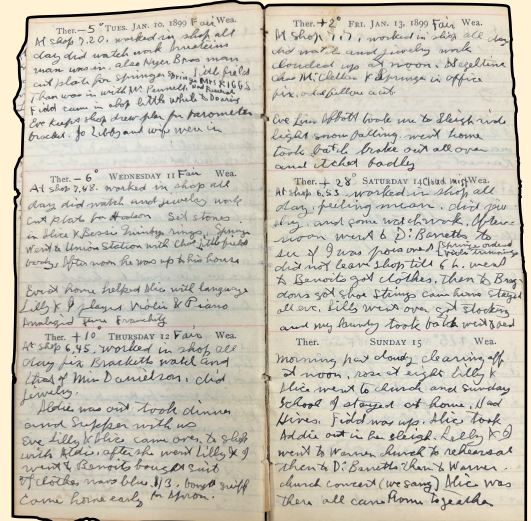 Ther. -5° TUES. JAN. 10, 1899 Fair Wea.
At shop 7.20. worked in shop all
day did watch work
man was in. also Nyer Bros man
cut plate for springer
man was in with
Fidd came in shop little while
Eve keeps shop drew plan for barometer
bracket. Jo Libby and wife were in
Ther. -6° WEDNESDAY 11 Fair Wea.
At shop 7.48. worked in shop all
day did watch and jewelry work
cut plate for Hodson Set stones
in Alice & Bessie rings,
Went to Union Station with Chas Littlefields
body, After noon he was up to his house
Eve at home helped Alic with language
Lilly & I played Violin & Piano
Ther. +10° THURSDAY 12 Fair Wea.
At shop 6.45. worked in shop all
day fix Bracketts watch and
that of Mrs Danielson, did
jewelry.
Addie was out took dinner
and supper with us
Eve Lilly & Alic came over to shop
with Addie, after she went Lilly & I
went to Benoits bought suit
of clothes navy blue \$13. bought
Came home early for
Ther. +2° FRI. JAN. 13, 1899 Fair Wea.
At shop 7.7. worked in shop all day
did watch and jewelry work
clouded up at noon.
Chas McClellan & Springer in office
fix
Eve Lin Abbott took me to Sleigh ride
light snow falling. went home
took bath broke out all over
and itched badly
Ther. +28° SATURDAY 14 Cloud Wea.
At shop 6.53. worked in shop all
day, feeling mean. did
and some watchwork. After-
noon went to Dr. Barretts to
see if I was poisoned
did not leave shop till 6 h. went
to Benoits got clothes, then to
got shoe strings came home stayed
all eve, Lilly went over got stocking
and my laundry took bath went bed
Ther. SUNDAY 15 Wea.
Morning part cloudy clearing off
at noon, rose at eight Lilly &
Alic went to church and Sunday
School I stayed at home. Had
Hives. Fidd was up. Alic took
Addie out in the sleigh. Lilly & I
went to Warren church to rehearsal
then to Dr. Barretts then to Warren
church concert (we sang) Alic was
there all came home together